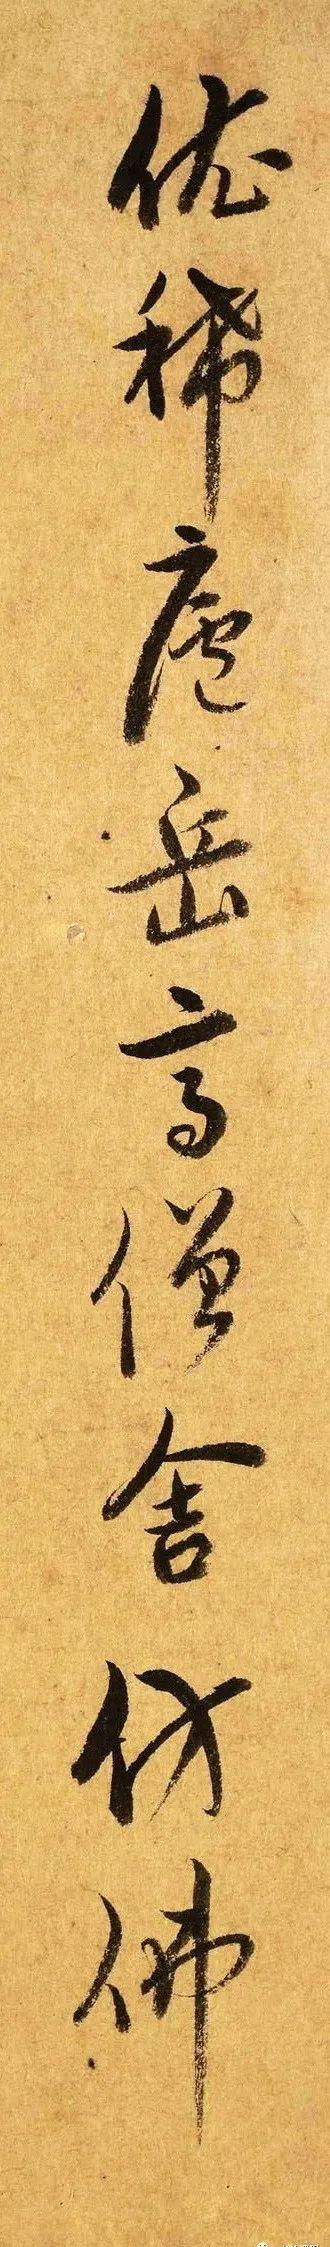 依稀廬岳高僧舍仿佛